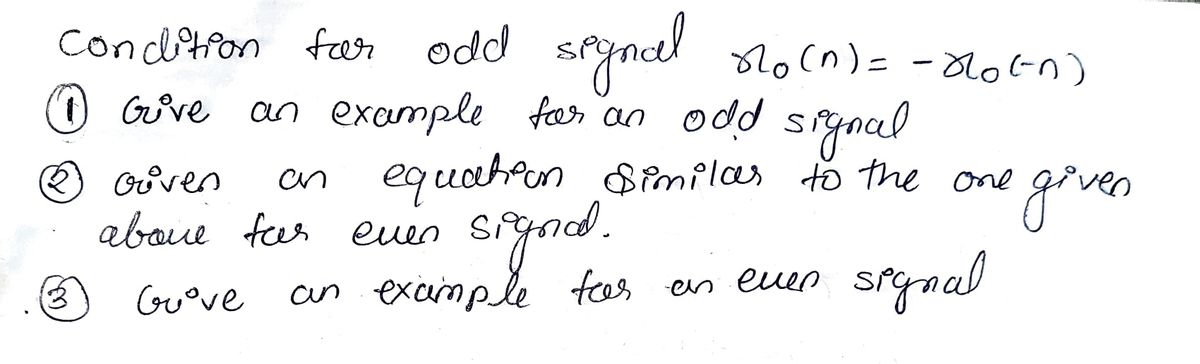 Condition for odd signal x₀(n) = -x₀(-n)
① Give an example for an odd signal
② Given an equation similar to the one given
above for even signal.
③ Give an example for an even signal